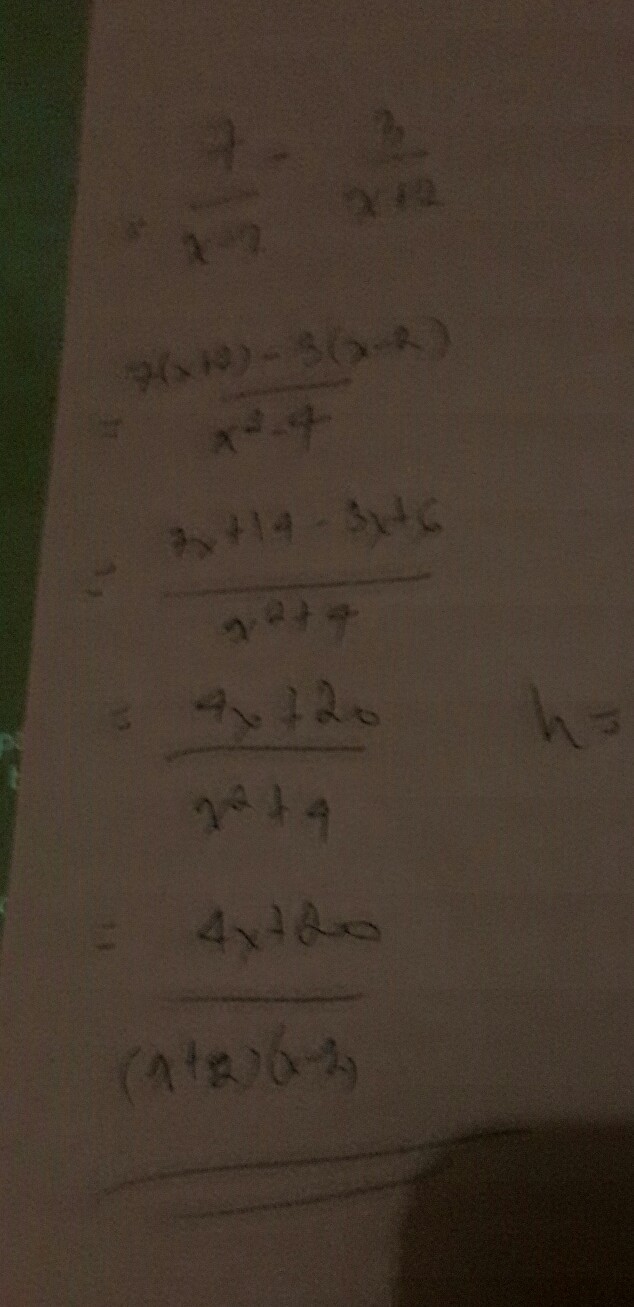 = 7/(x-2) - 3/(x+2)
= (7(x+2) - 3(x-2))/(x²-4)
= (7x+14 - 3x+6)/(x²+4)
= (4x+20)/(x²+4)
h=
= (4x+20)/((x+2)(x-2))